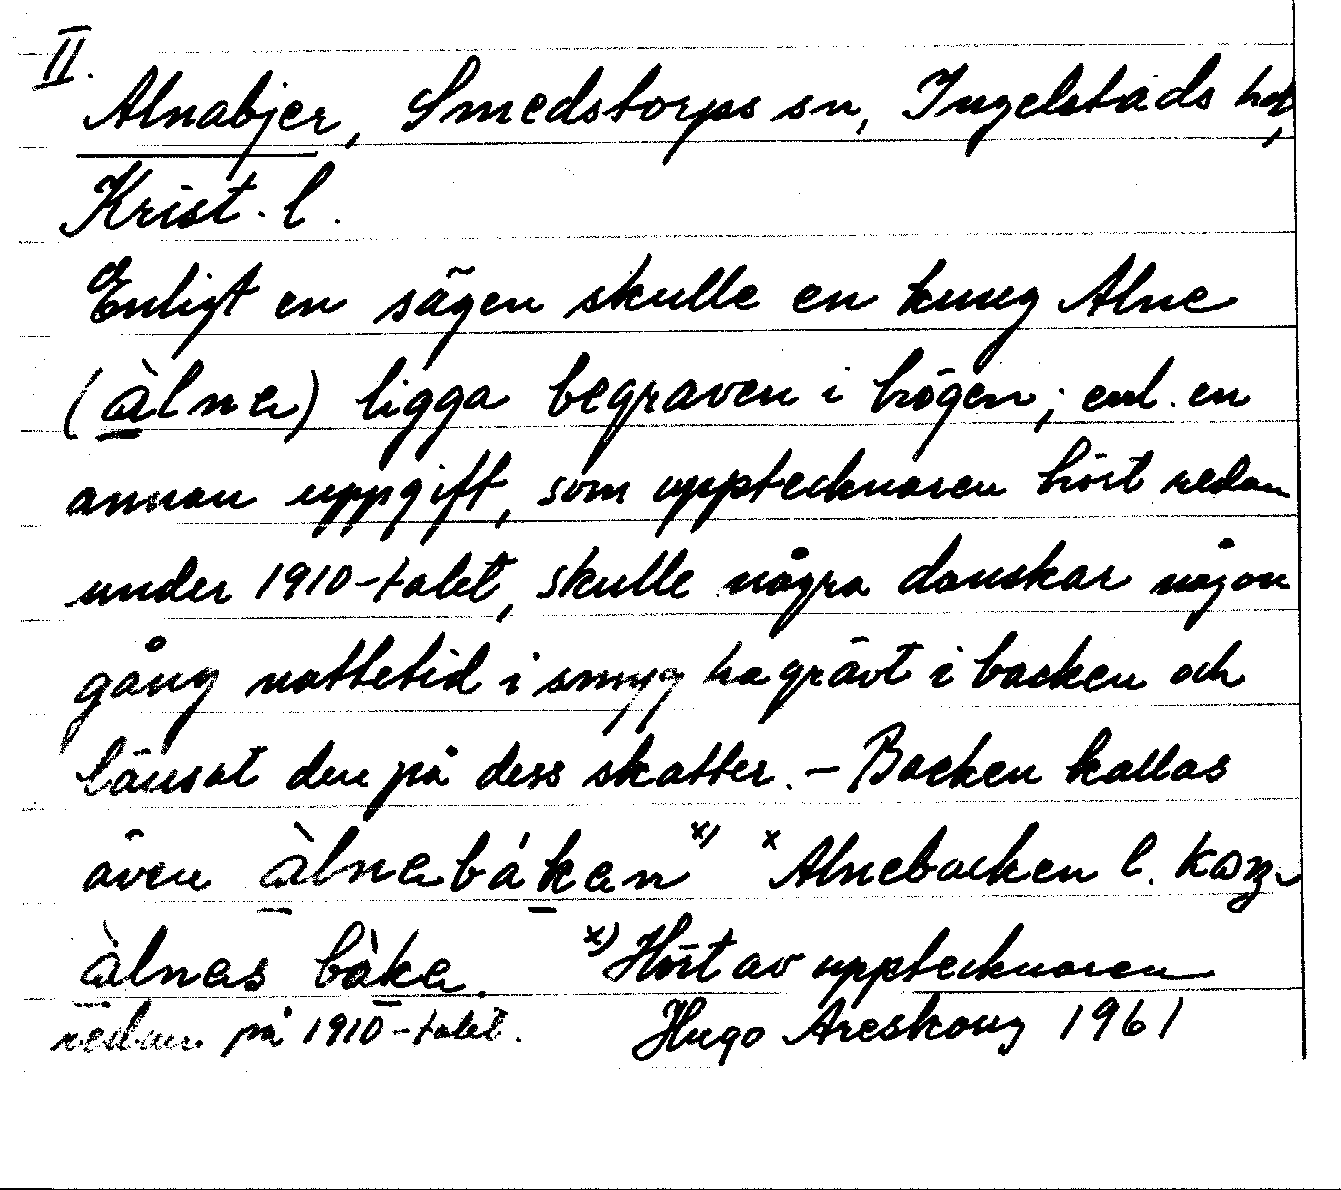 II.
Alnabjer, Smedstorps sn, Ingelstads hd,
Krist. l.
Enligt en sägen skulle en kung Alne
(àlnɐ) ligga begraven i högen; enl. en
annan uppgift, som upptecknaren hört redan
under 1910-talet, skulle några danskar någon
gång nattetid i smyg ha grävt i backen och
länsat den på dess skatter. – Backen kallas
även àlnɐbákɐn x) x Alnebacken l.
àlnɐs bàkɐ. x) Hört av upptecknaren
redan på 1910-talet. Hugo Areskoug 1961